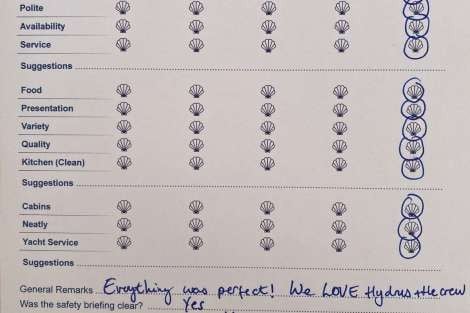 Polite
Availability
Service
Suggestions
Food
Presentation
Variety
Quality
Kitchen (Clean)
Suggestions
Cabins
Neatly
Yacht Service
Suggestions
General Remarks Everything was perfect! We LOVE Hydrus + the crew
Was the safety briefing clear? Yes